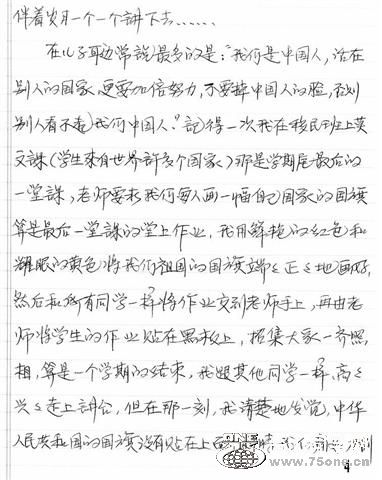 伴着岁月一个一个讲下去……
在儿子耳边常说最多的是:"我们是中国人,活在
别人的国家,更要加倍努力,不要掉中国人的脸,否则
别人看不起我们中国人。"記得一次我在移民班上英
文課(学生來自世界許多个国家)那是学期底最后的
一堂課,老师要求我们每人画一幅自己国家的国旗
算是最后一堂課的堂上作业,我用鲜艳的红色和
耀眼的黄色将我们祖国的国旗端々正々地画好,
然后和所有同学一样将作业交到老师手上,再由老
师将学生的作业贴在黑板上,招集大家一齐照
相,算是一个学期的结束,我跟其他同学一样,高々
兴々走上讲台,但在那一刻,我清楚地发觉,中华
人民共和国的国旗没有贴在上面
www.75ong.cn
4